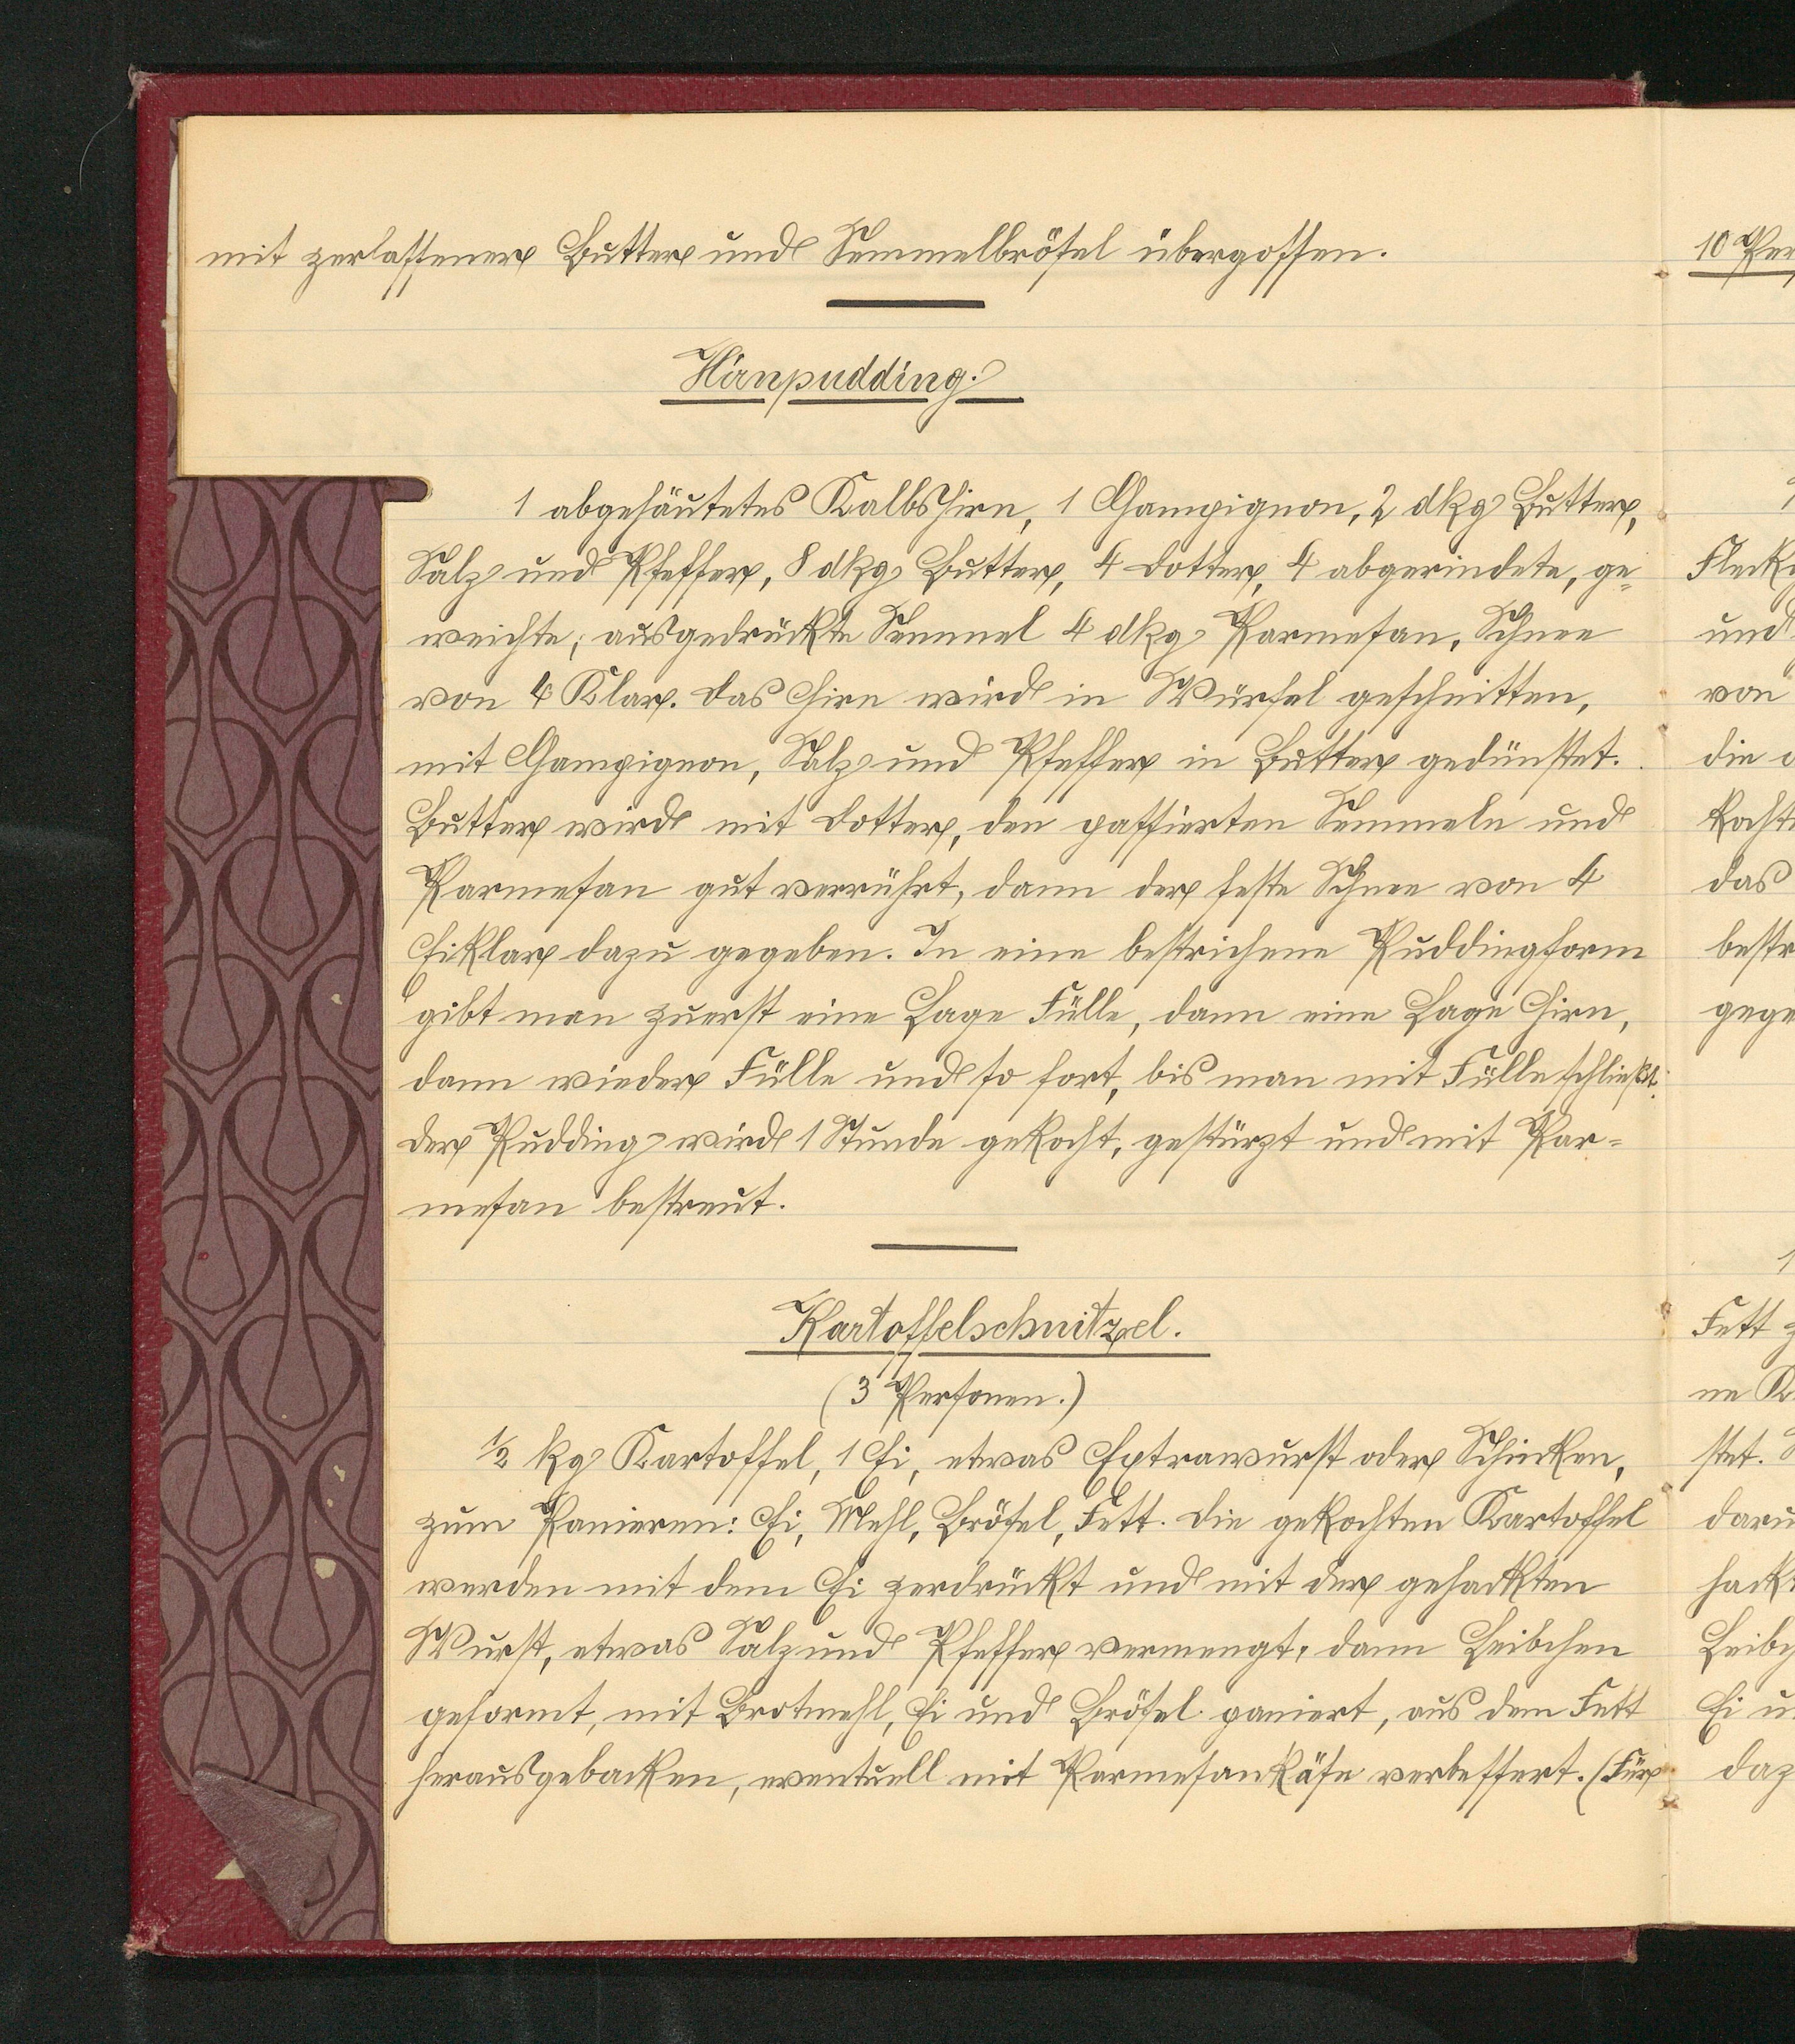 mit zerlassener Butter und Semmelbrösel übergossen.
Hirnpudding.
1 abgehäutetes Kalbshirn, 1 Champignon, 2 dkg Butter,
Salz und Pfeffer, 8 dkg Butter, 4 Dotter, 4 abgerindete, ge-
weichte, ausgedrückte Semmel 4 dkg Parmesan, Schnee
von 4 Klar. Das Hirn wird in Würfel geschnitten,
mit Champignon, Salz und Pfeffer in Butter gedünstet.
Butter wird mit Dotter, den passierten Semmeln und
Parmesan gut verrührt, dann der feste Schnee von 4
Eiklar dazu gegeben. In eine bestrichene Puddingform
gibt man zuerst eine Lage Fülle, dann eine Lage Hirn,
dann wieder Fülle und so fort, bis man mit Fülle schließt.
Der Pudding wird 1 Stunde gekocht, gestürzt und mit Par-
mesan bestreut.
Kartoffelschnitzel.
(3 Personen.)
1/2 kg Kartoffel, 1 Ei, etwas Extrawurst oder Schinken,
zum Panieren: Ei, Mehl, Brösel, Fett. Die gekochten Kartoffel
werden mit dem Ei zerdrückt und mit der gehackten
Wurst, etwas Salz und Pfeffer vermengt, dann Leibchen
geformt, mit Brotmehl, Ei und Brösel paniert, aus dem Fett
herausgebacken, eventuell mit Parmesankäse verbessert. (Für
10 Per
Fleck
und
von
die
kocht
das
bestr
gege
1
Fett
ne K
stet.
daru
hackt
Leibc
Ei u
daz